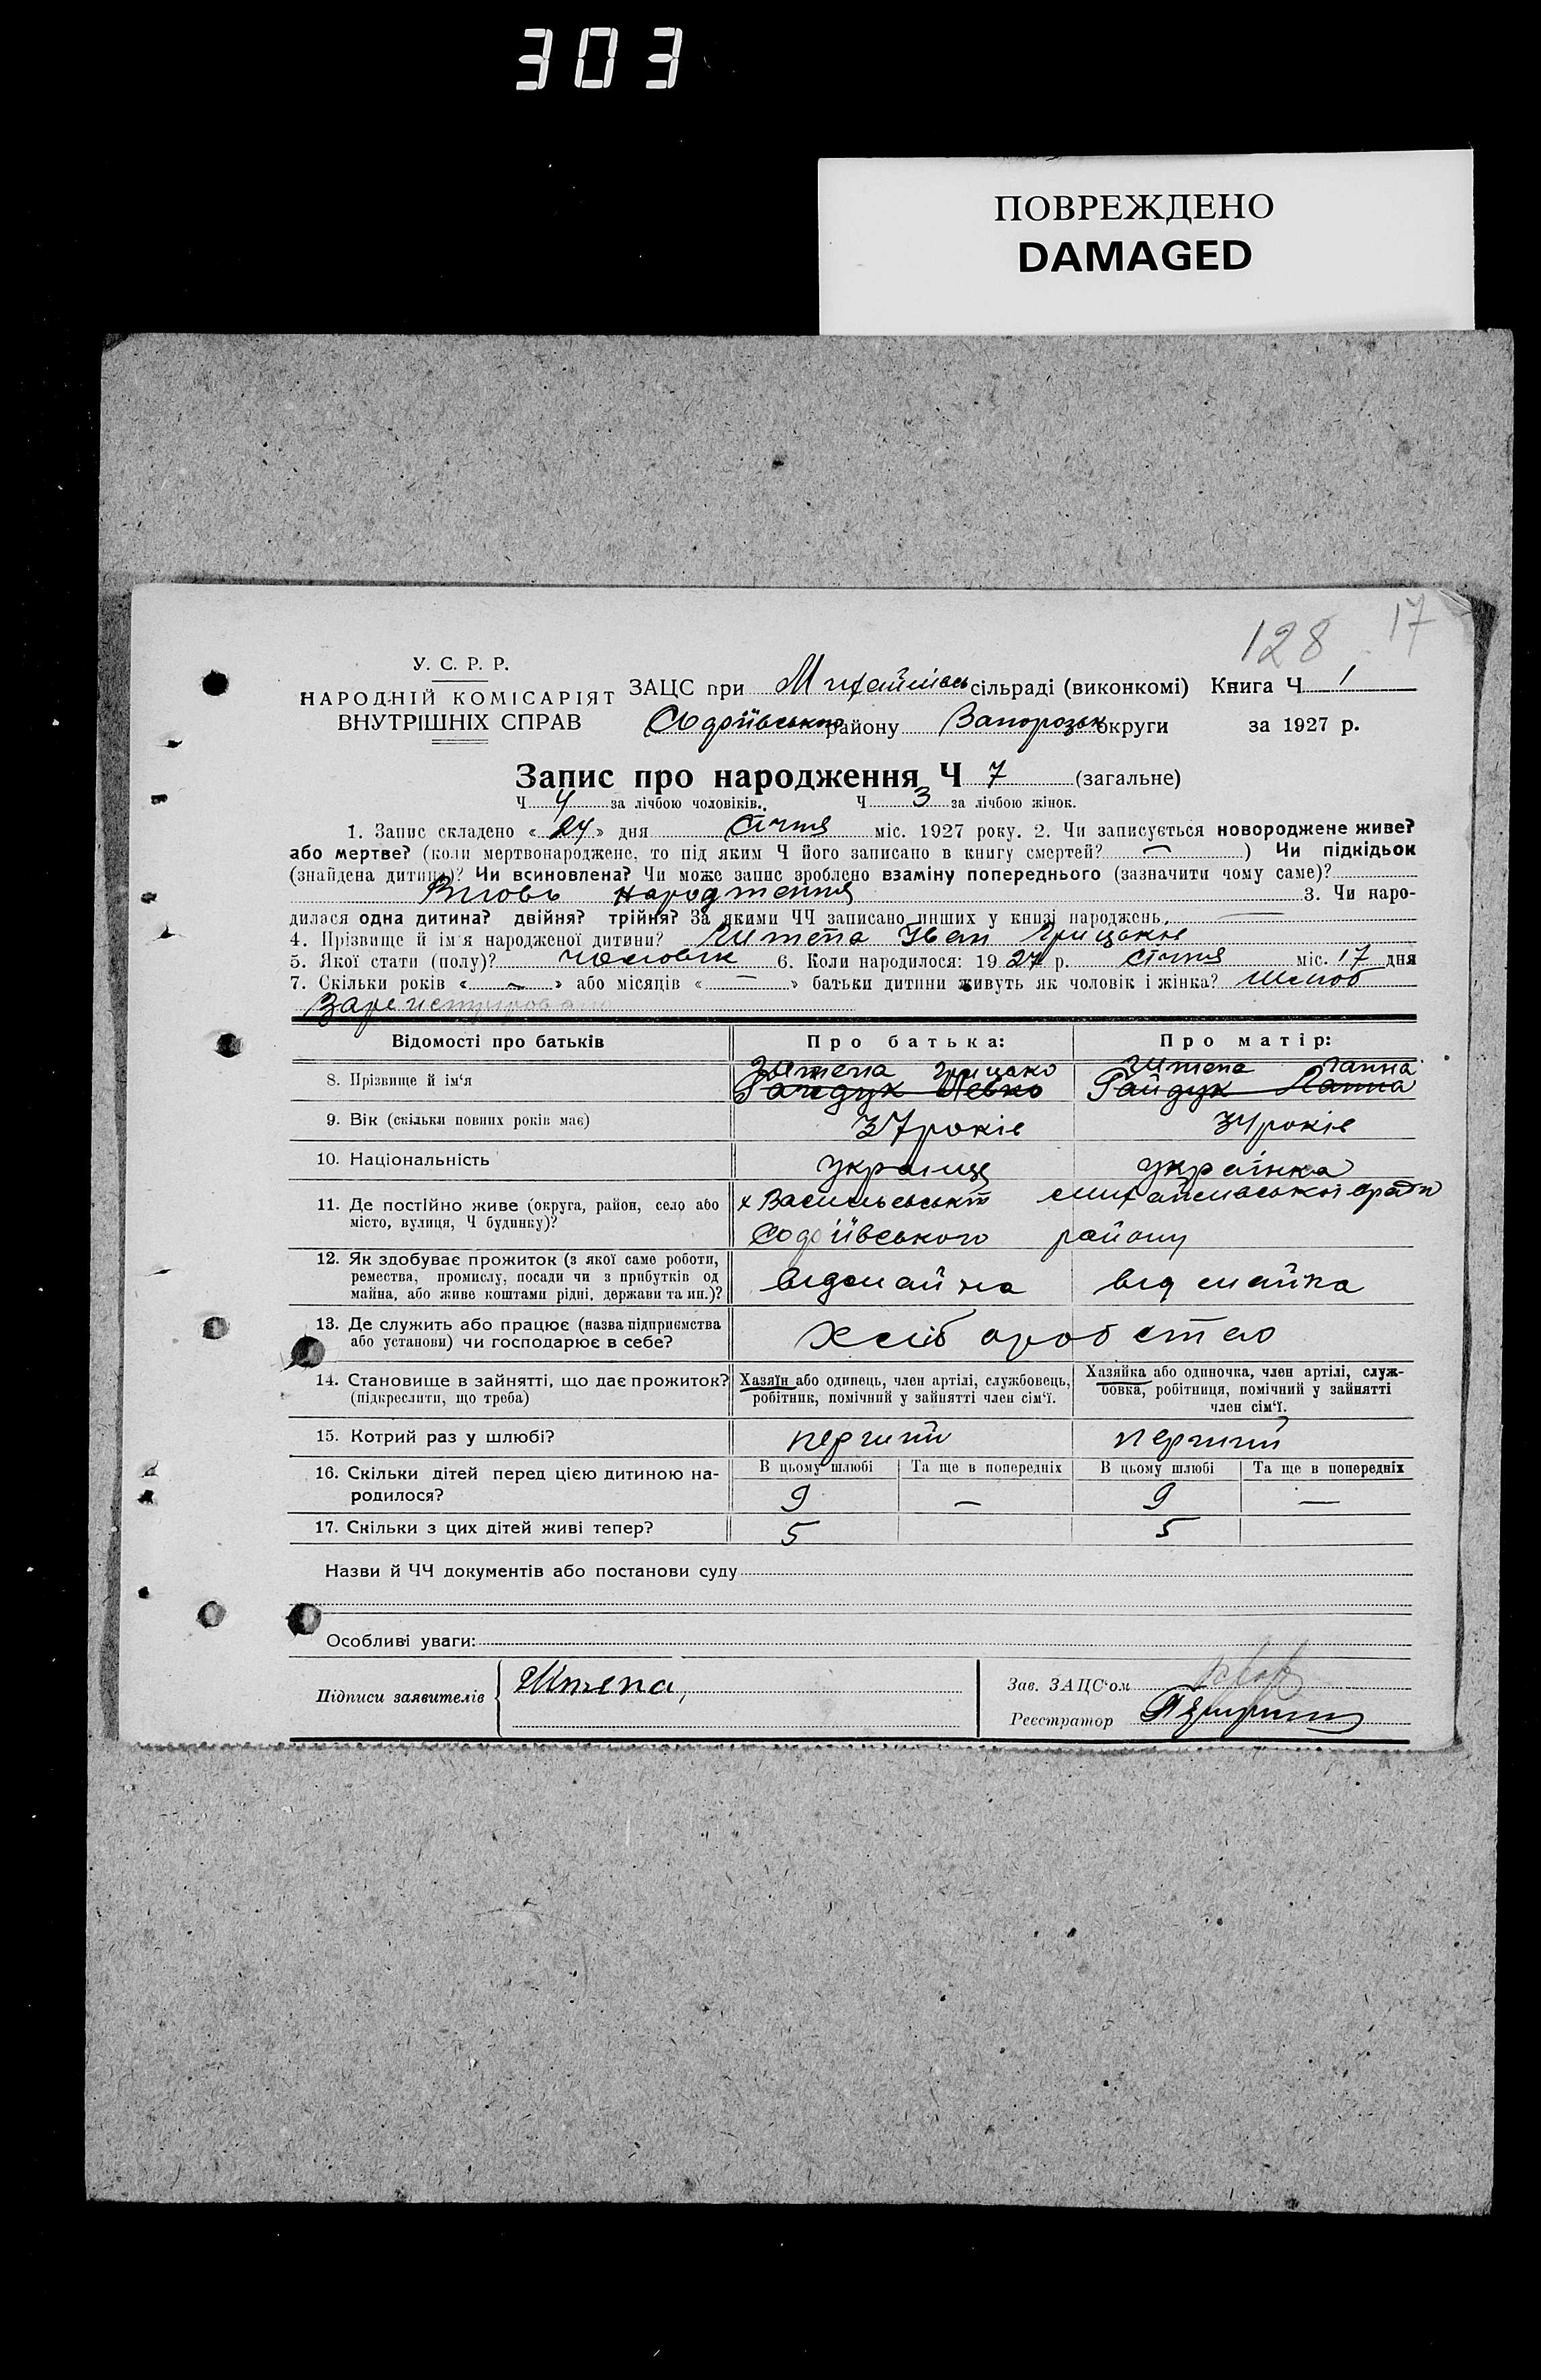 303
ПОВРЕЖДЕНО
DAMAGED
128 17
У. С. Р. Р.
НАРОДНІЙ КОМІСАРІЯТ
ВНУТРІШНІХ СПРАВ
ЗАЦС при сільраді (виконкомі) Книга Ч 1
району Запорозьк округи за 1927 р.
Запис про народження Ч 7 (загальне)
Ч 4 за лічбою чоловіків. Ч 3 за лічбою жінок.
1. Запис складено « 24 » дня січня міс. 1927 року. 2. Чи записується новороджене живе?
або мертве? (коли мертвонароджене, то під яким Ч його записано в книгу смертей? — ) Чи підкідьок
(знайдена дитина)? Чи всиновлена? Чи може запис зроблено взаміну попереднього (зазначити чому саме)?
Вновь народження 3. Чи наро-
дилася одна дитина? двійня? трійня? За якими ЧЧ записано инших у книзі народжень —
4. Прізвище й ім'я народженої дитини? Штепа Іван Грицьків
5. Якої стати (полу)? чоловік 6. Коли народилося: 19 27 р. січня міс. 17 дня
7. Скільки років « — » або місяців « — » батьки дитини живуть як чоловік і жінка? Шлюб
зарегистрировано
Відомості про батьків
Про батька:
Про матір:
8. Прізвище й ім'я
Штепа Грицько
Гайдук Левко
Штепа Ганна
Гайдук Ганна
9. Вік (скільки повних років має)
37 років
34 років
10. Національність
украінець
украінка
11. Де постійно живе (округа, район, село або
місто, вулиця, Ч будинку)?
х Васильевськ
району
12. Як здобуває прожиток (з якої саме роботи,
ремества, промислу, посади чи з прибутків од
майна, або живе коштами рідні, держави та ин.)?
від майна
від майна
13. Де служить або працює (назва підприємства
або установи) чи господарює в себе?
хліборобство
14. Становище в зайнятті, що дає прожиток?
(підкреслити, що треба)
Хазяїн або одинець, член артілі, службовець,
робітник, помічний у зайнятті член сім'ї.
Хазяйка або одиночка, член артілі, служ-
бовка, робітниця, помічний у зайнятті
член сім'ї.
15. Котрий раз у шлюбі?
перший
перший
16. Скільки дітей перед цією дитиною на-
родилося?
В цьому шлюбі
Та ще в попередніх
В цьому шлюбі
Та ще в попередніх
9 — 9 —
17. Скільки з цих дітей живі тепер?
5 5
Назви й ЧЧ документів або постанови суду
Особливі уваги:
Підписи заявителів
Штепа
Зав. ЗАЦС'ом
Реєстратор